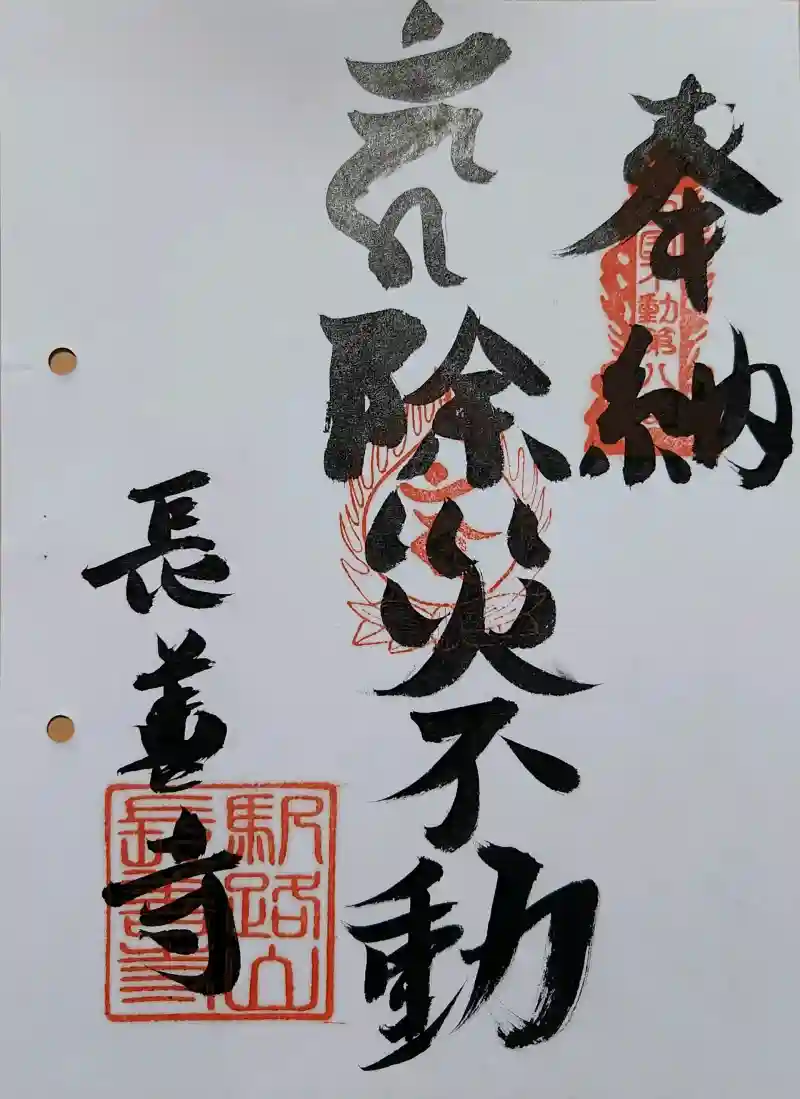 奉納
除災不動
長善寺
駅路山
長善寺